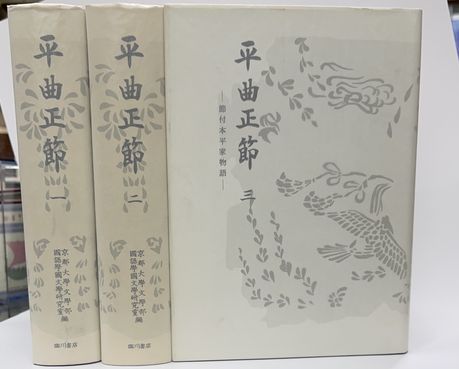 平曲正節 一
京都大學文學部
國語學國文學研究室編
臨川書店
平曲正節 二
京都大學文學部
國語學國文學研究室編
臨川書店
平曲正節 三
―節付本平家物語―